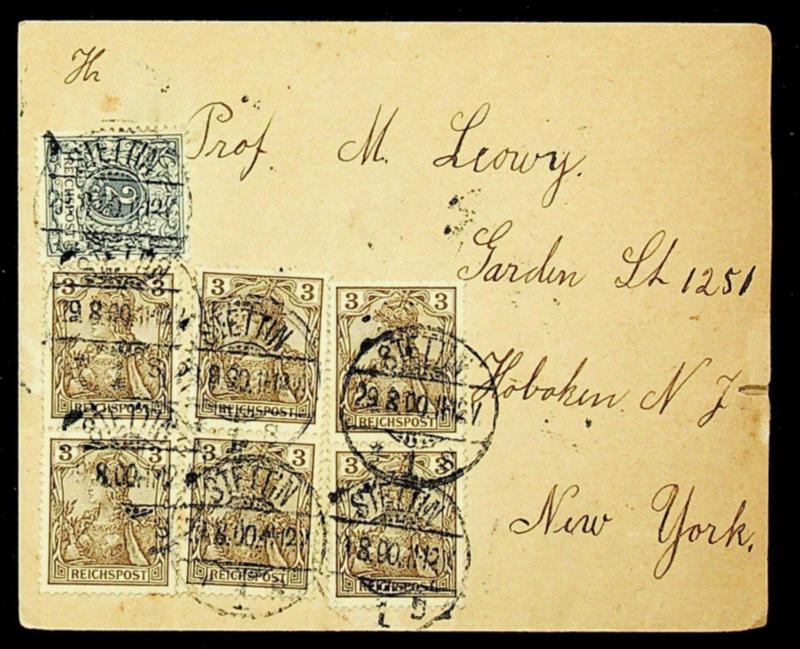 Hr
Prof. M. Leowy.
Garden St 1251
Hoboken N J
New York.
STETTIN
2
REICHSPOST
STETTIN
3 3
29.8.00.11-12V
REICHSPOST
3 3
STETTIN
8.00.11-12V
REICHSPOST
3 3
STETTIN
29.8.00.11-12V
REICHSPOST
3 3
8.00.11-12
REICHSPOST
3 3
STETTIN
8.00.11-12V
REICHSPOST
3 3
STETTIN
8.00.11-12V
REICHSPOST